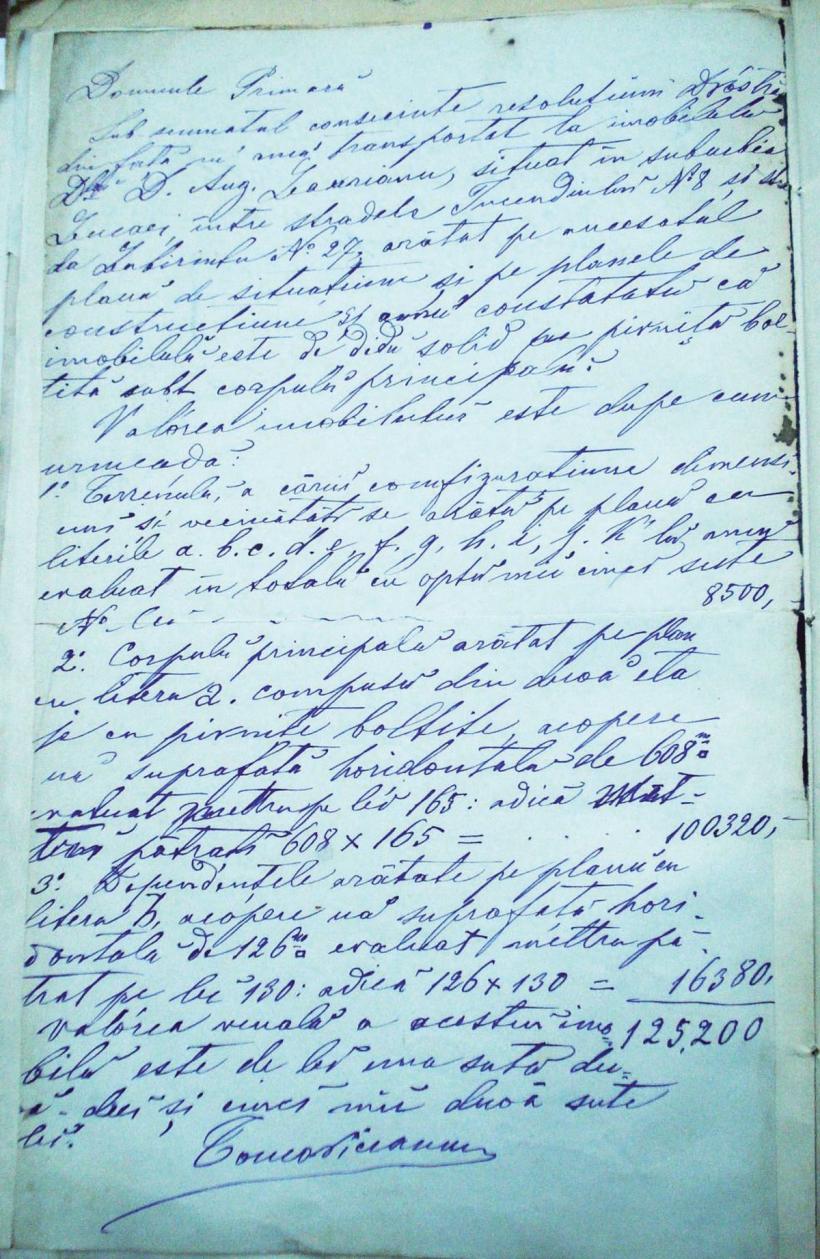 Domnule Primarŭ
Sub semnatul consecinte resoluțiuni Dvóstră
din față m'amŭ transportat la imobilulŭ
Dlui D. Aug. Laurianu, situat în suburbia
Lucaci, între stradele Incendiului No 8 și
da Labirintu No 27, arătat pe anecsatul
planŭ de situațiune și pe planele de
construcțiune, și amŭ constatatŭ că
imobilulŭ este de zidŭ solid cu pivnița bol-
tită subt corpulŭ principalŭ.
Valórea imobilului este dupe cum
urmeadă:
1o. Terrénulŭ, a căruĭ configurațiune dimensi-
uni și vecinătăți se arătă pe planŭ cu
literile a. b. c. d. e. f. g. h. i. j. K lŭ amŭ
evaluat în totalŭ cu optŭ miĭ cincĭ sute
No. Lei 8500,
2o. Corpulŭ principalŭ arătat pe plan
cu litera a. compusŭ din două eta
je cu pivnițe boltite, acopere
uă suprafață horidontală de 608 m□
evaluat pe leĭ 165: adică
patrați 608 x 165 = . . . 100320,-
3o. Dependințele arătate pe planŭ cu
litera b, acopere uă suprafață hori-
dontală de 126 m□ evaluat mettru pă-
trat pe leĭ 130: adică 126 x 130 = 16380,
Valórea venală a acestuĭ imo- 125,200
bilŭ este de leĭ una sută du-
ă-decĭ și cincĭ miĭ două sute
leĭ.